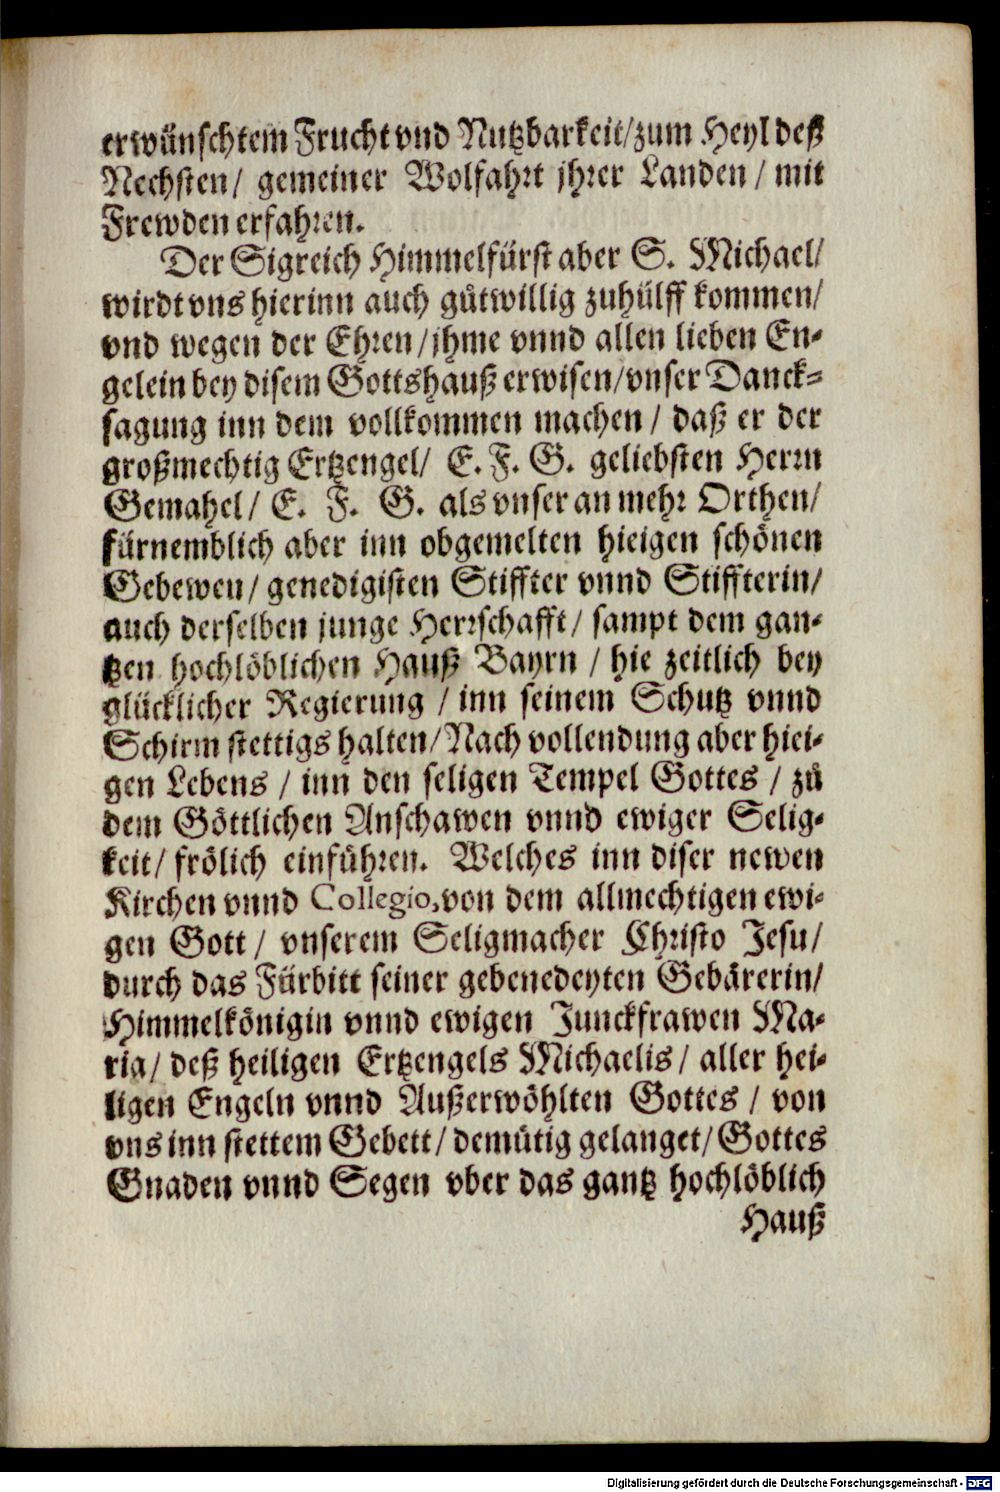 erwünschtem Frucht vnd Nutzbarkeit/zum Heyl deß
Nechsten/ gemeiner Wolfahrt jhrer Landen/ mit
Frewden erfahren.
Der Sigreich Himmelfürst aber S. Michael/
wirdt vns hierinn auch gůtwillig zuhülff kommen/
vnd wegen der Ehren/jhme vnnd allen lieben En-
gelein bey disem Gottshauß erwisen/vnser Danck-
sagung inn dem vollkommen machen/ daß er der
großmechtig Ertzengel/ E. F. G. geliebsten Herrn
Gemahel/ E. F. G. als vnser an mehr Orthen/
fürnemblich aber inn obgemelten hieigen schönen
Gebewen/ genedigisten Stiffter vnnd Stiffterin/
auch derselben junge Herrschafft/ sampt dem gan-
tzen hochlöblichen Hauß Bayrn/ hie zeitlich bey
glücklicher Regierung/ inn seinem Schutz vnnd
Schirm stettigs halten/Nach vollendung aber hiei-
gen Lebens/ inn den seligen Tempel Gottes/ zů
dem Göttlichen Anschawen vnnd ewiger Selig-
keit/ frölich einführen. Welches inn diser newen
Kirchen vnnd Collegio, von dem allmechtigen ewi-
gen Gott/ vnserem Seligmacher Christo Jesu/
durch das Fürbitt seiner gebenedeyten Gebärerin/
Himmelkönigin vnnd ewigen Junckfrawen Ma-
ria/ deß heiligen Ertzengels Michaelis/ aller hei-
ligen Engeln vnnd Außerwöhlten Gottes/ von
vns inn stettem Gebett/ demütig gelanget/ Gottes
Gnaden vnnd Segen vber das gantz hochlöblich
Hauß
Digitalisierung gefördert durch die Deutsche Forschungsgemeinschaft - DFG